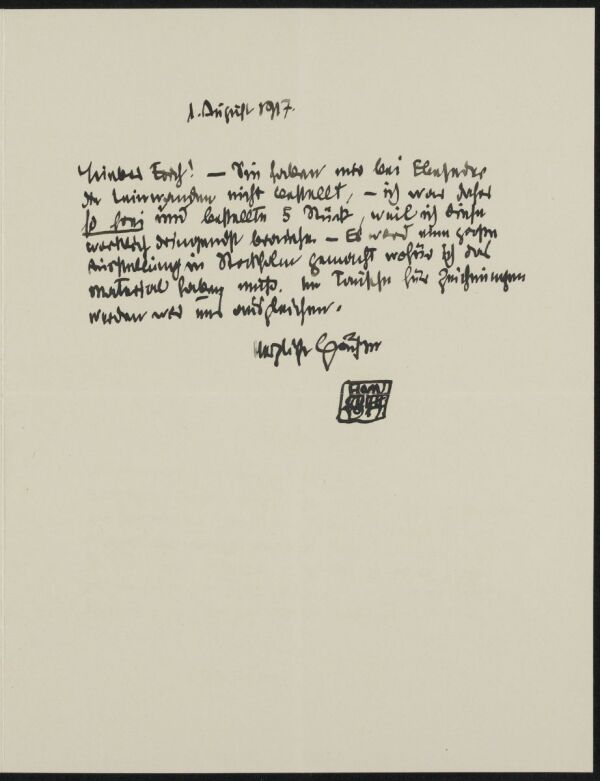 1. August 1917.
Lieber Erich! — Sie haben mir bei Ebeseder
die Leinwanden nicht bestellt, — ich war daher
so frei und bestellte 5 Stück, weil ich diese
wirklich dringendst brauche. — Es wird eine große
Ausstellung in Stockholm gemacht wofür ich das
Material haben muß. Im Tausche für Zeichnungen
werden wir uns ausgleichen.
Herzliche Grüße